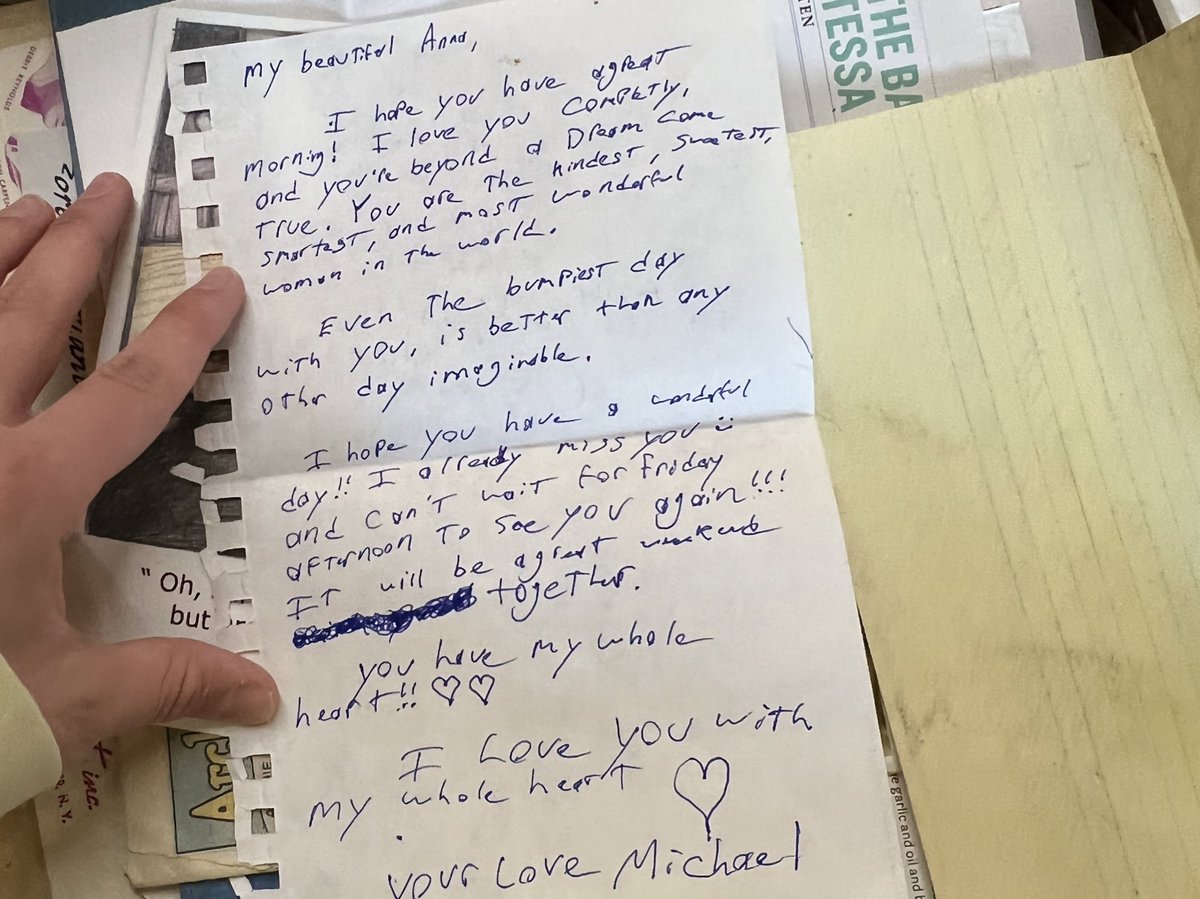 my beautiful Anna,
I hope you have agreat
morning! I love you completly,
and you're beyond a Dream come
True. You are the kindest, sweetest,
smartest, and most wonderful
woman in the world.
Even The bumpiest day
with you, is better than any
other day imaginable.
I hope you have a wonderful
day!! I already miss you :)
and can't wait for Friday
afternoon To see you again!!!
IT will be agreat weekend
together.
you have my whole
heart!! ♡♡
I Love you with
my whole heart ♡
your Love Michael
" Oh,
but
THE BA
TESSA
TEN
DEBBIE REYNOLDS
+ inc.
N.Y.
e garlic and oil and b